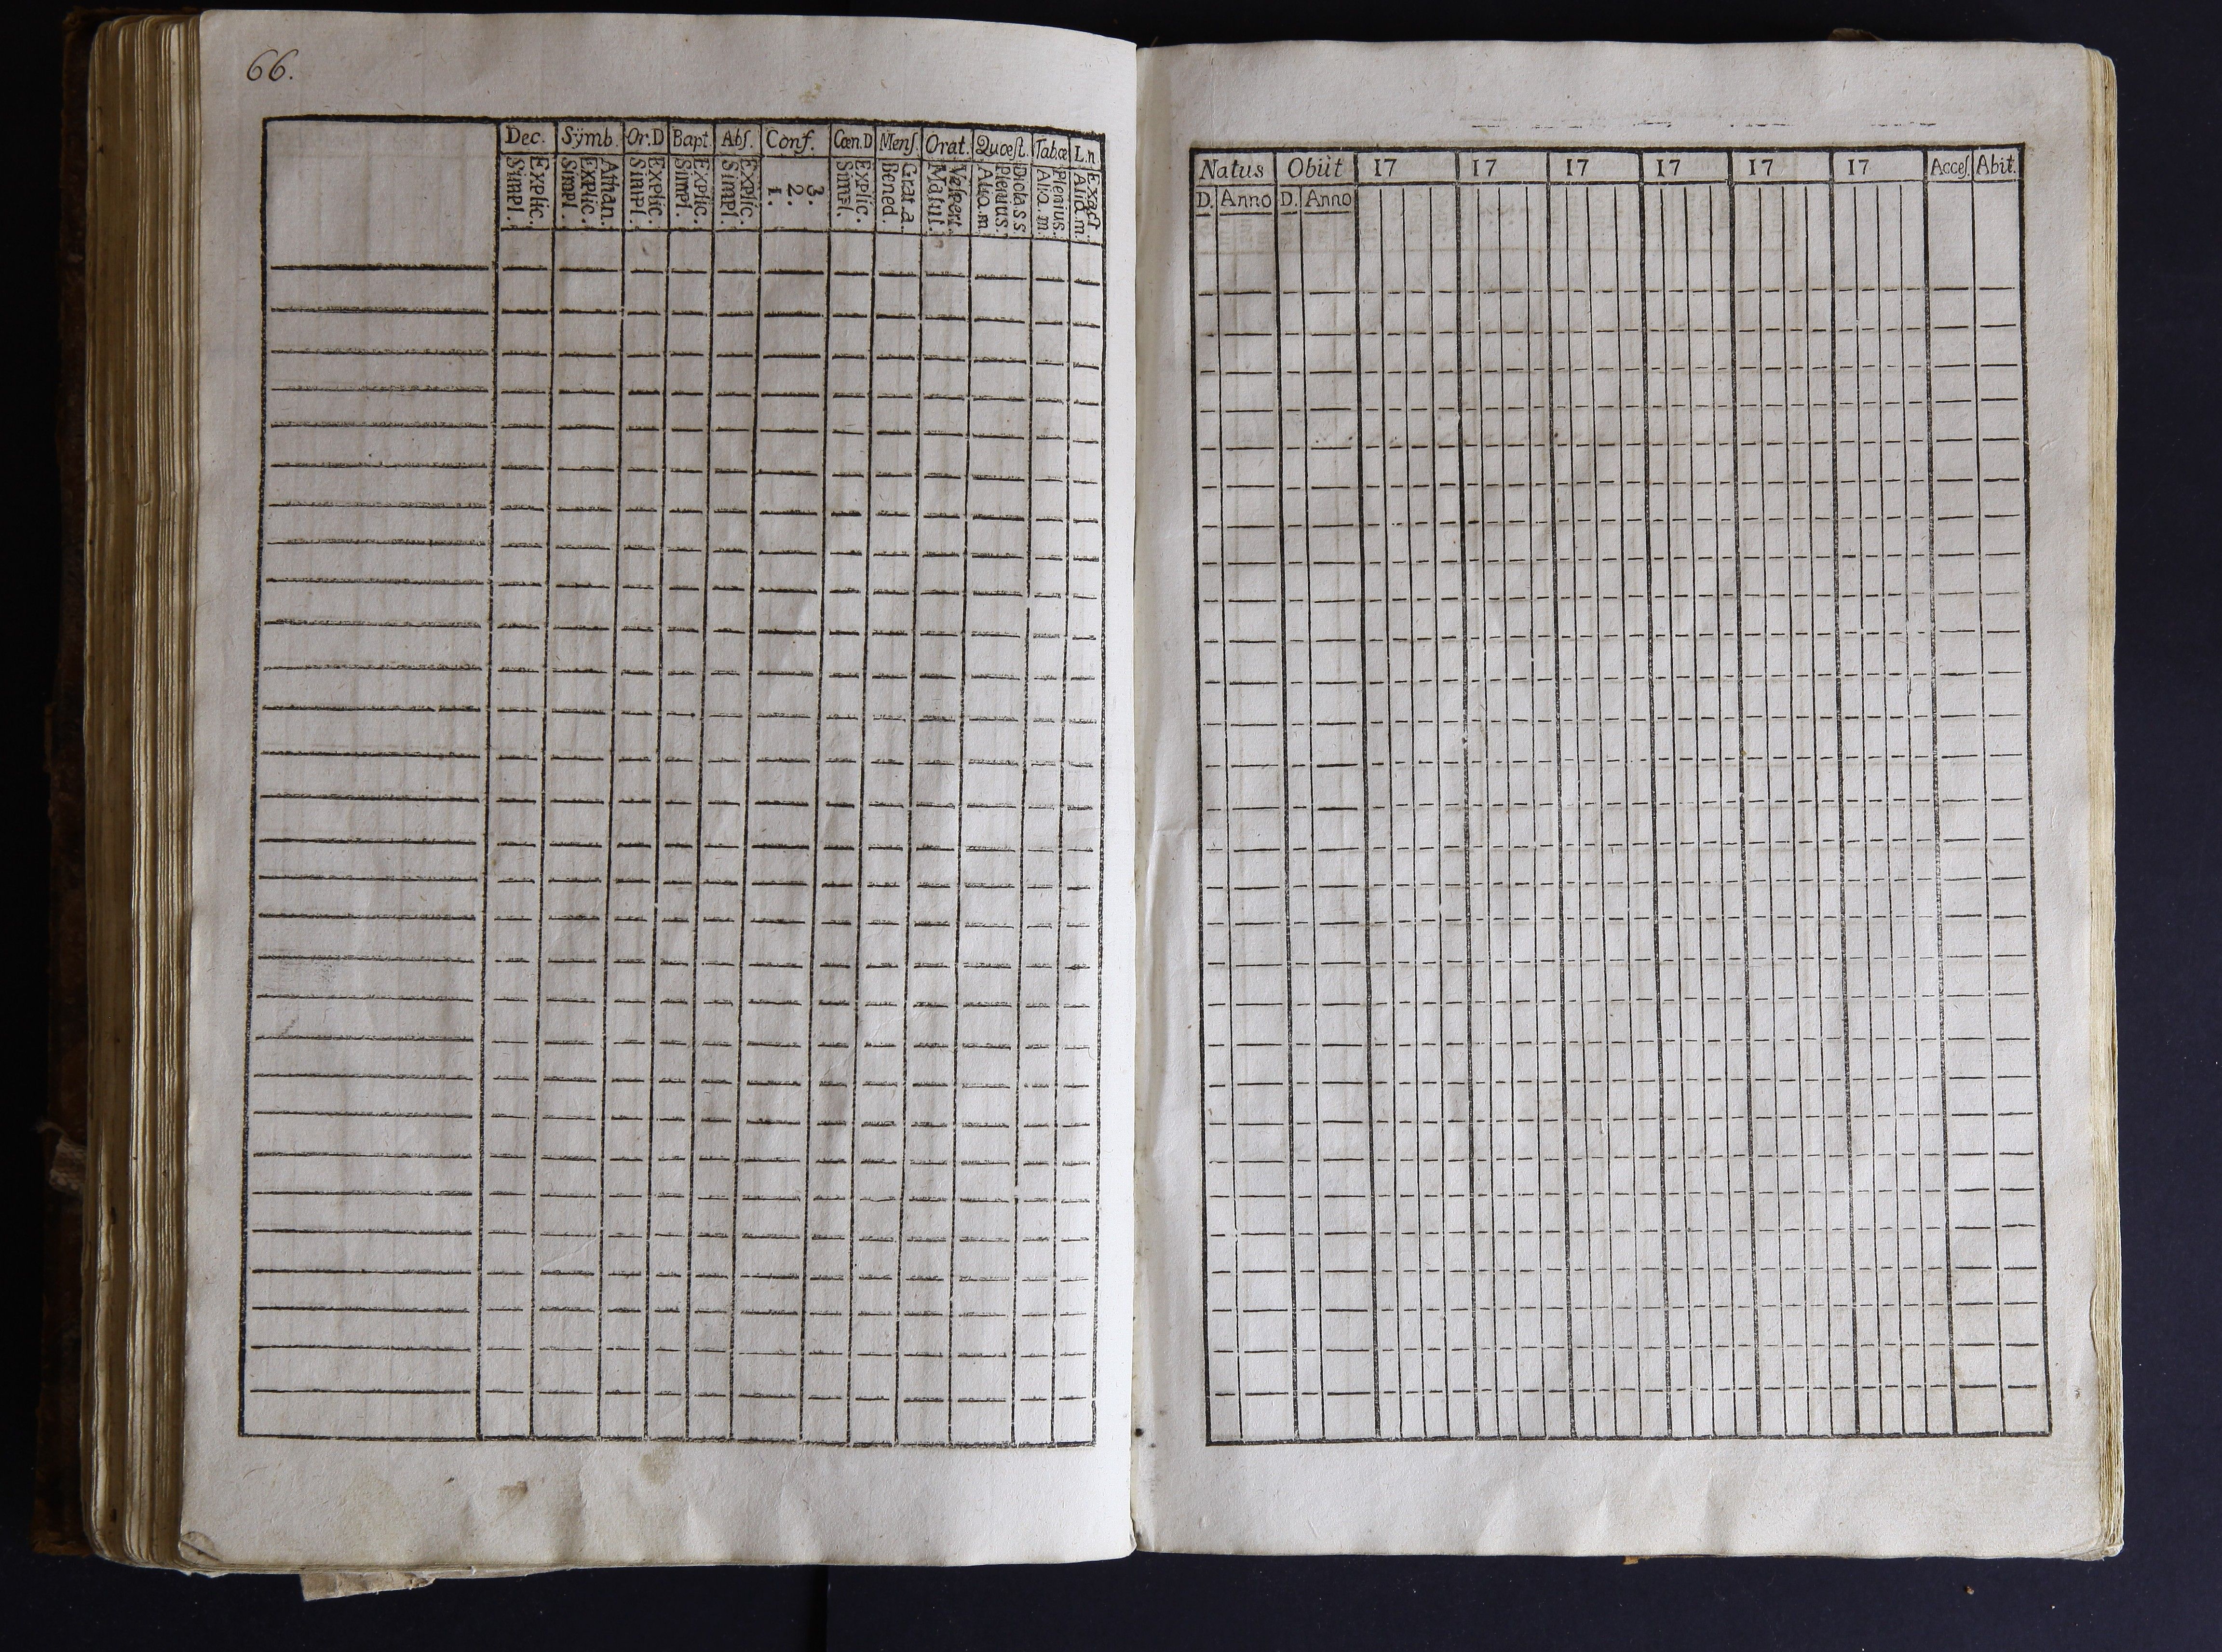 66.
Dec. Sÿmb. Or.D Bapt. Abſ. Conf. Cœn.D Menſ. Orat. Quœſt. Tab.œ L.n
Explic. Simpl. Athan. Explic. Simpl. Explic. Simpl. Explic. Simpl. Explic. Simpl. 3. 2. 1. Explic. Simpl. Grat.a. Bened. Veſpert. Matut. Dicta S S Plenius. Alio.m Plenius. Alio.m. Exact. Aliq.m.
Natus Obiit 17 17 17 17 17 17 Acceſ. Abit.
D. Anno D. Anno